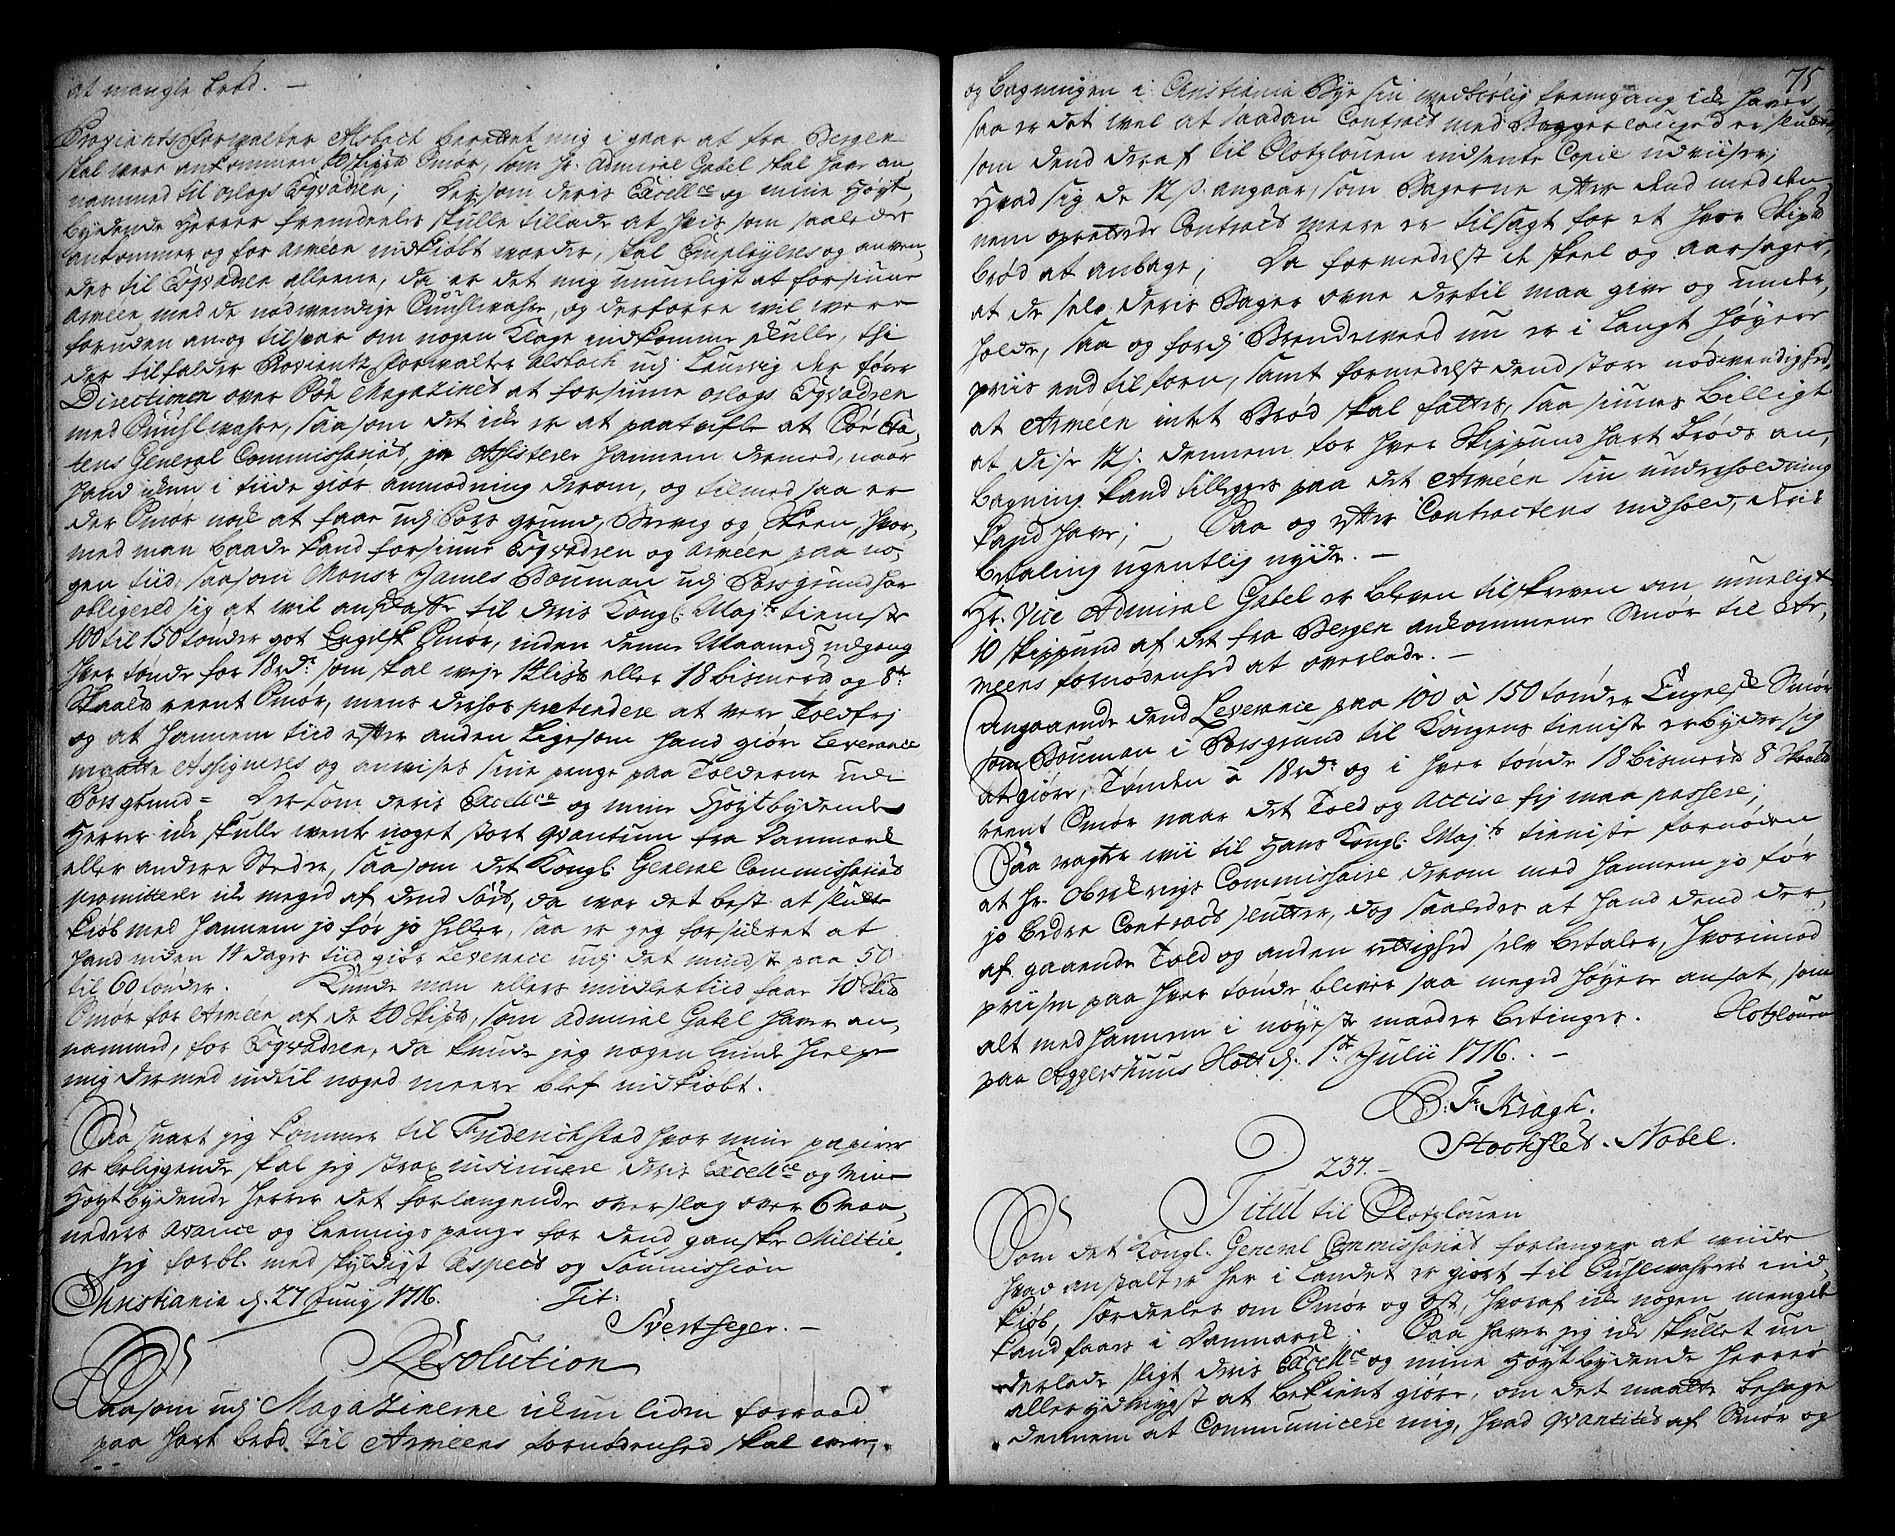 at mangle brød. —
Provients forvalter Alsbech berettet mig i gaar at fra Bergen
skal være ankommen 40 skip℔ Smør, som Hr. Admiral Gabel skal have an,
nammed til orlogs Esqvadren; Dersom deris Excellce og mine Høyt,
bydende Herrer fremdeeles skulle tillade at hvis som saaledes
ankommer og for Armeen indkiøbt worder, skal Employeres og anven,
des til Esqvadren alleene, da er det mig umueligt at forsiune
Armeen med de nødwendige Victualiewahre, og derforre wil were
foruden an og tilsvar om nogen Klage indkomme skulle, thi
det tilfalder Provients forvalter Alsbech udj Laurvig der fører
Directionen over Søe Magazinet at forsiune orlogs Esqvadren
med wahre, saasom det icke er at paatvifle at Søe Eta,
tens General Commissariat, jo Assisterer hannem dermed, naar
hand ickun i tiide giør anmodning derom, og tilmed saa er
der Smør nok at faae udj Porsgrund, Brevig og Skeen, hvor,
med man baade kand forsiune Esqvadren og Armeen paa no,
gen tiid, saasom Monsr James Bouman udj Porsgrund har
obligered sig at wil anskaffe til deris Kongl. Majts tieniste
100 til 150 tønder got Engelsk Smør, inden denne Maaneds udgang
hver tønde for 18 rdr. som skal weje 14 lis℔ eller 18 bismer℔ og 8te
Skaal℔ reent Smør, mens derhos prætendere at were Toldfrj
og at hannem tiid efter anden ligesom hand giør Leverance
maatte Assigneres og anvises sine penge paa Tolderne udi
Porsgrund = Dersom deris Excellce og mine Høytbydende
Herrer icke skulle wente noget stort qvantum fra Danmark
eller andre Steder, saasom det Kongl. General Commissariat
promitterer icke meged af dend sort, da war det best at slutte
kiøb med hannem jo før jo heller, saa er jeg forsikret at
hand inden 14 dages tiid giør Leverance udj det mindste paa 50
til 60 tønder. Kunde man ellers imidlertiid faae 10 skip℔
Smør for Armeen af de 40 skip℔, som Admiral Gabel haver an,
nammed, for Esqvadren, da kunde jeg nogen lunde hielpe
mig dermed indtil noged meere blef indkiøbt.
Saa snart jeg kommer til Friderichstad hvor mine papirer
er beliggende, skal jeg strax insinuere deris Excellce og mine
Høytbydende Herrer det forlangende overslag over 6 maa,
neders avance og leenings penge for dend gandske Militie.
Jeg forbl. med skyldigt Respect og Soumission
Christiania d. 27 Junij 1716. Tit:
Svertfeger. —
Resolution
Saasom udj Magazinerne ickun liden forraad
paa hart brød til Armeens fornødenhed skal were,
75
og bagningen i Christiania Bye sin wedbørlig fremgang icke haver,
saa er det wel at saadan Contract med Bagger lauged er sluttet
som dend deraf til Slotzlouen indsente Copie udviiser;
Hvad sig de 12 s. angaar, som Bagerne efter dend med den,
nem oprettede Contract meere er tilsagt for et hver Skip℔
brød at anbage; Da formedelst et skeel og aarsager,
at de selv deris Bager ovne dertil maa give og under,
holde, saa og fordj Brendeweed nu er i langt høyere
priis end tilforn, samt formedelst dend store nødwendighed,
at Armeen intet Brød skal fattes, saa siunes billigt
at disse 12 s. dennem for hver Skippund hart brøds an,
bagning kand tillegges paa det Armeen sin underholdning
kand have; Saa og efter Contractens indhold, deris
betaling ugentlig nyde. —
Hr. Vice Admiral Gabel er bleven tilskreven om mueligt
10 skippund af det fra Bergen ankommene Smør til Ar,
meens fornødenhed at overlade. —
Angaaende dend Leverance paa 100 à 150 tønder Engelsk Smør
som Bouman i Porsgrund til Kongens tieniste erbyder sig
at giøre, Tønden à 18 rdr. og i hver tønde 18 bismer℔ 8 Skaal℔
reent Smør naar det Told og Accise frj maa passere;
Saa ragter wii til Hans Kongl. Majts tieniste fornøden
at Hr. Oberkrigs Commissaire derom med hannem jo før
jo bedre Contract slutter, dog saaledes at hand dend der,
af gaaende Told og anden rettighed selv betaler, hvorimod
priisen paa hver tønde bliver saa meged høyere ansat, som
alt med hannem i nøyeste maader betinges. Slotzlouen
paa Aggershuus Slott d. 1te Julii 1716. —
B: Fr. Kragh.
Stochfleth. Nobel.
237. —
Titul til Slotzlouen
Som det Kongl. General Commissariat forlanger at wiide
hvad anstalter her i Landet er giort til Victualiewahrers ind,
kiøb, særdeeles om Smør og ost, hvoraf icke nogen mengde
kand faaes i Danmark; Saa haver jeg icke skullet un,
derlade sligt deris Excellce og mine Høytbydende Herrer
allerydmygst at bekient giøre, om det maatte behage
dennem at Communicere mig, hvad qvantitet af Smør og